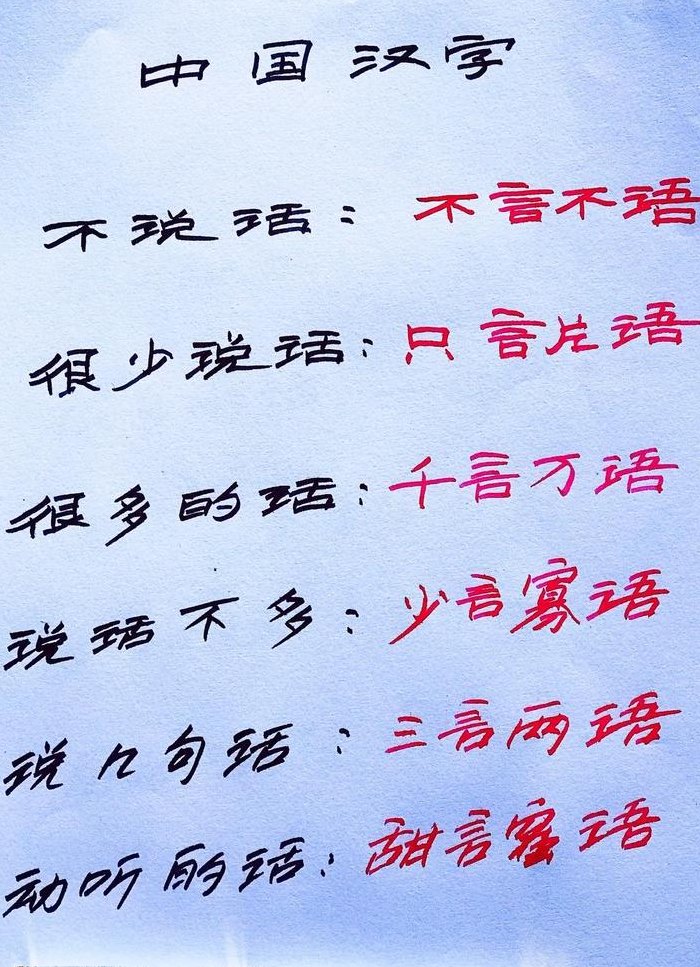 中国汉字
不说话：不言不语
很少说话：只言片语
很多的话：千言万语
说话不多：少言寡语
说几句话：三言两语
动听的话：甜言蜜语